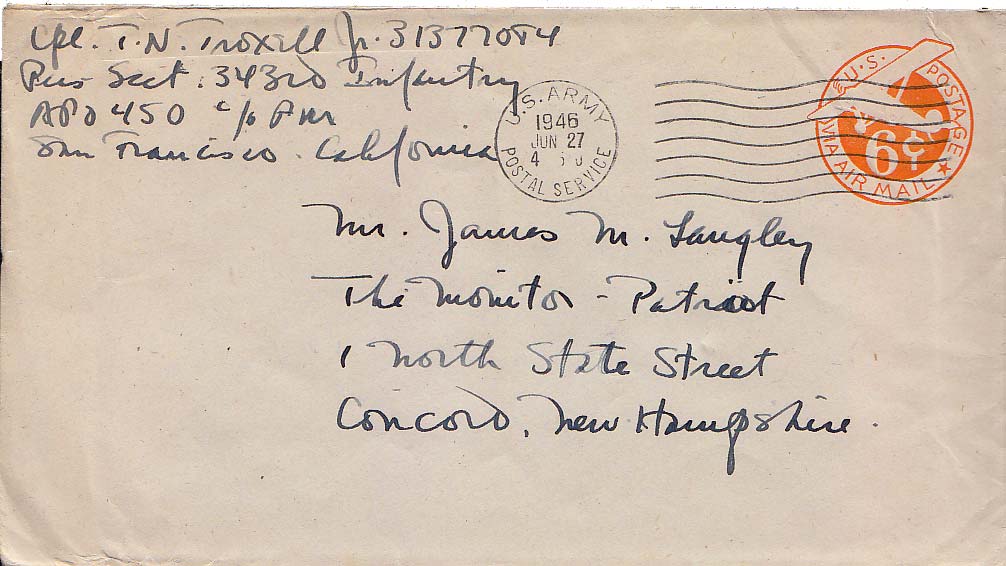 Cpl. T.N. Troxell Jr. 31377084
Sect. 343rd Infantry
APO 450 c/o P.M.
San Francisco. California
U.S. ARMY
1946
JUN 27
4
POSTAL SERVICE
U.S. POSTAGE
6¢
VIA AIR MAIL
Mr. James M. Langley
The Monitor - Patriot
1 North State Street
Concord, New Hampshire.